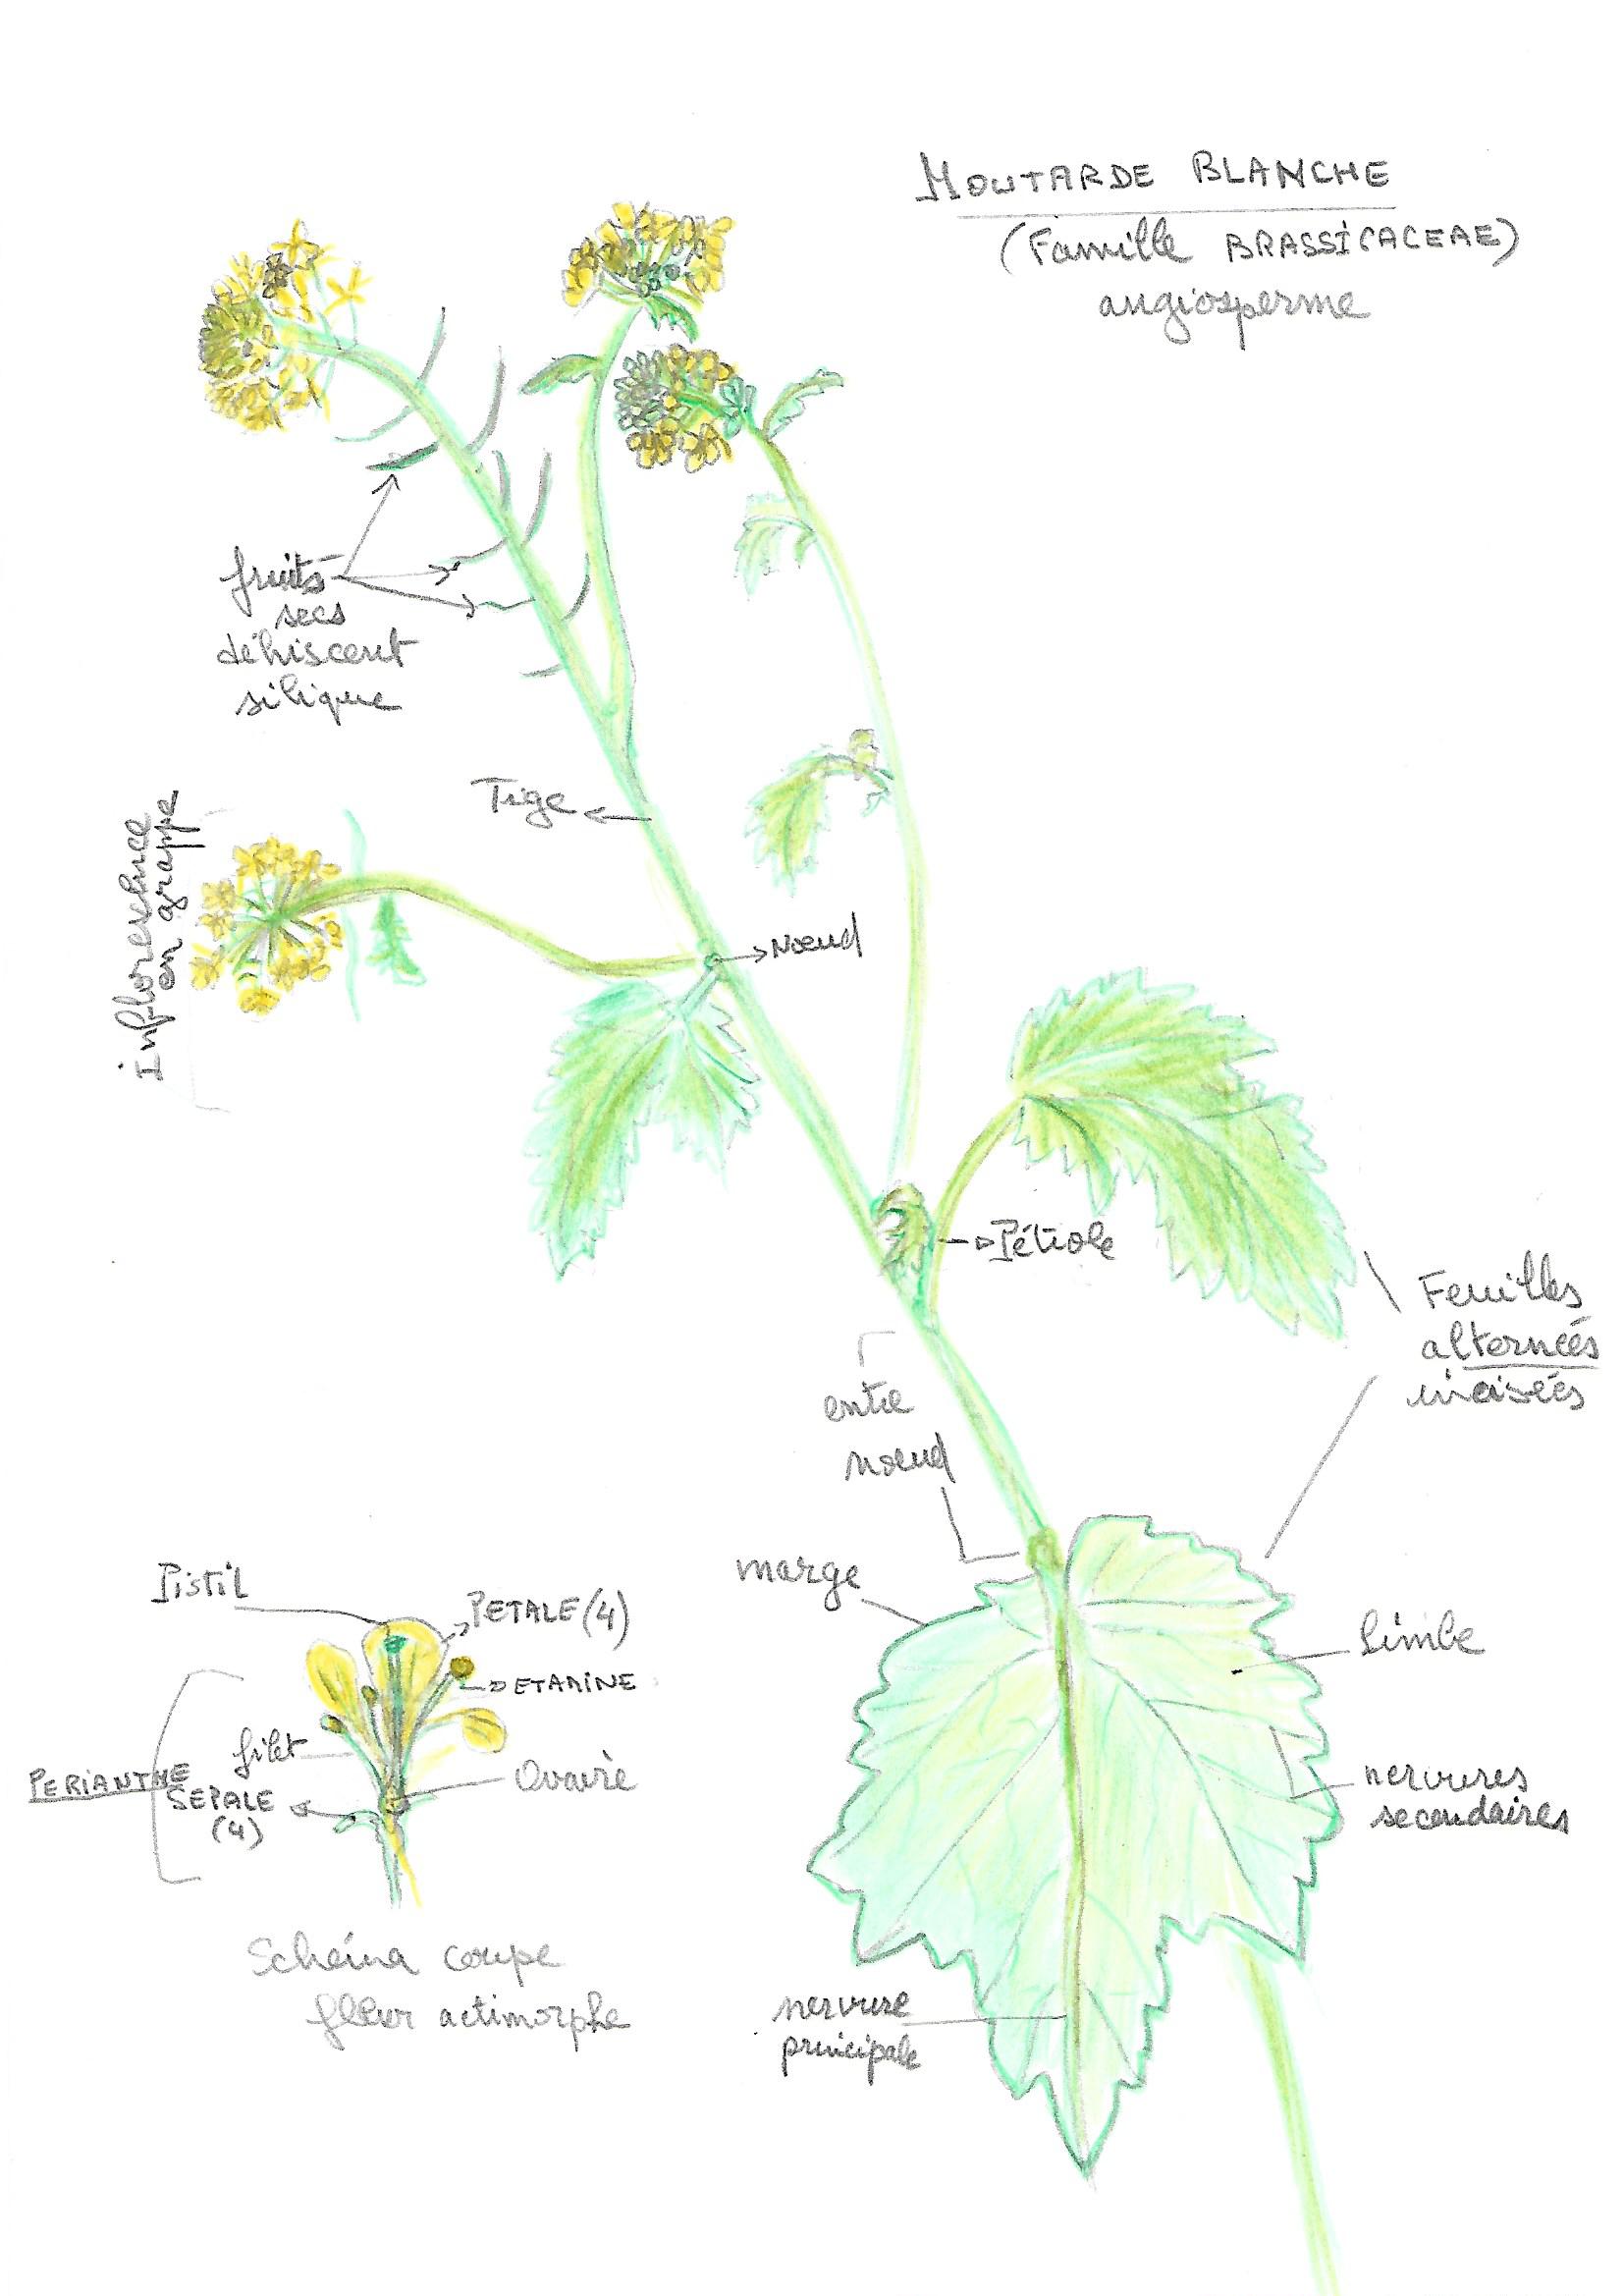 MOUTARDE BLANCHE
(Famille BRASSICACEAE)
angiosperme
fruits
secs
déhiscent
silique
Tige
Inflorexence
en grappe
Noeud
Pétiole
Feuilles
alternées
incisées
entre
noeud
marge
Limbe
nervures
secondaires
nervure
principale
Pistil
PETALE (4)
ETAMINE
filet
PERIANTHE
SEPALE
(4)
Ovaire
Schéma coupe
fleur actimorphe